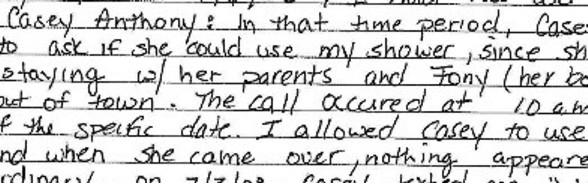 Casey Anthony: In that time period, Case
to ask if she could use my shower, since sh
staying w/ her parents and Tony (her bo
out of town. The call occured at 10 am
f the specific date. I allowed Casey to use
nd when she came over, nothing appeare
rdinary. on 7/7/08 Casey texted